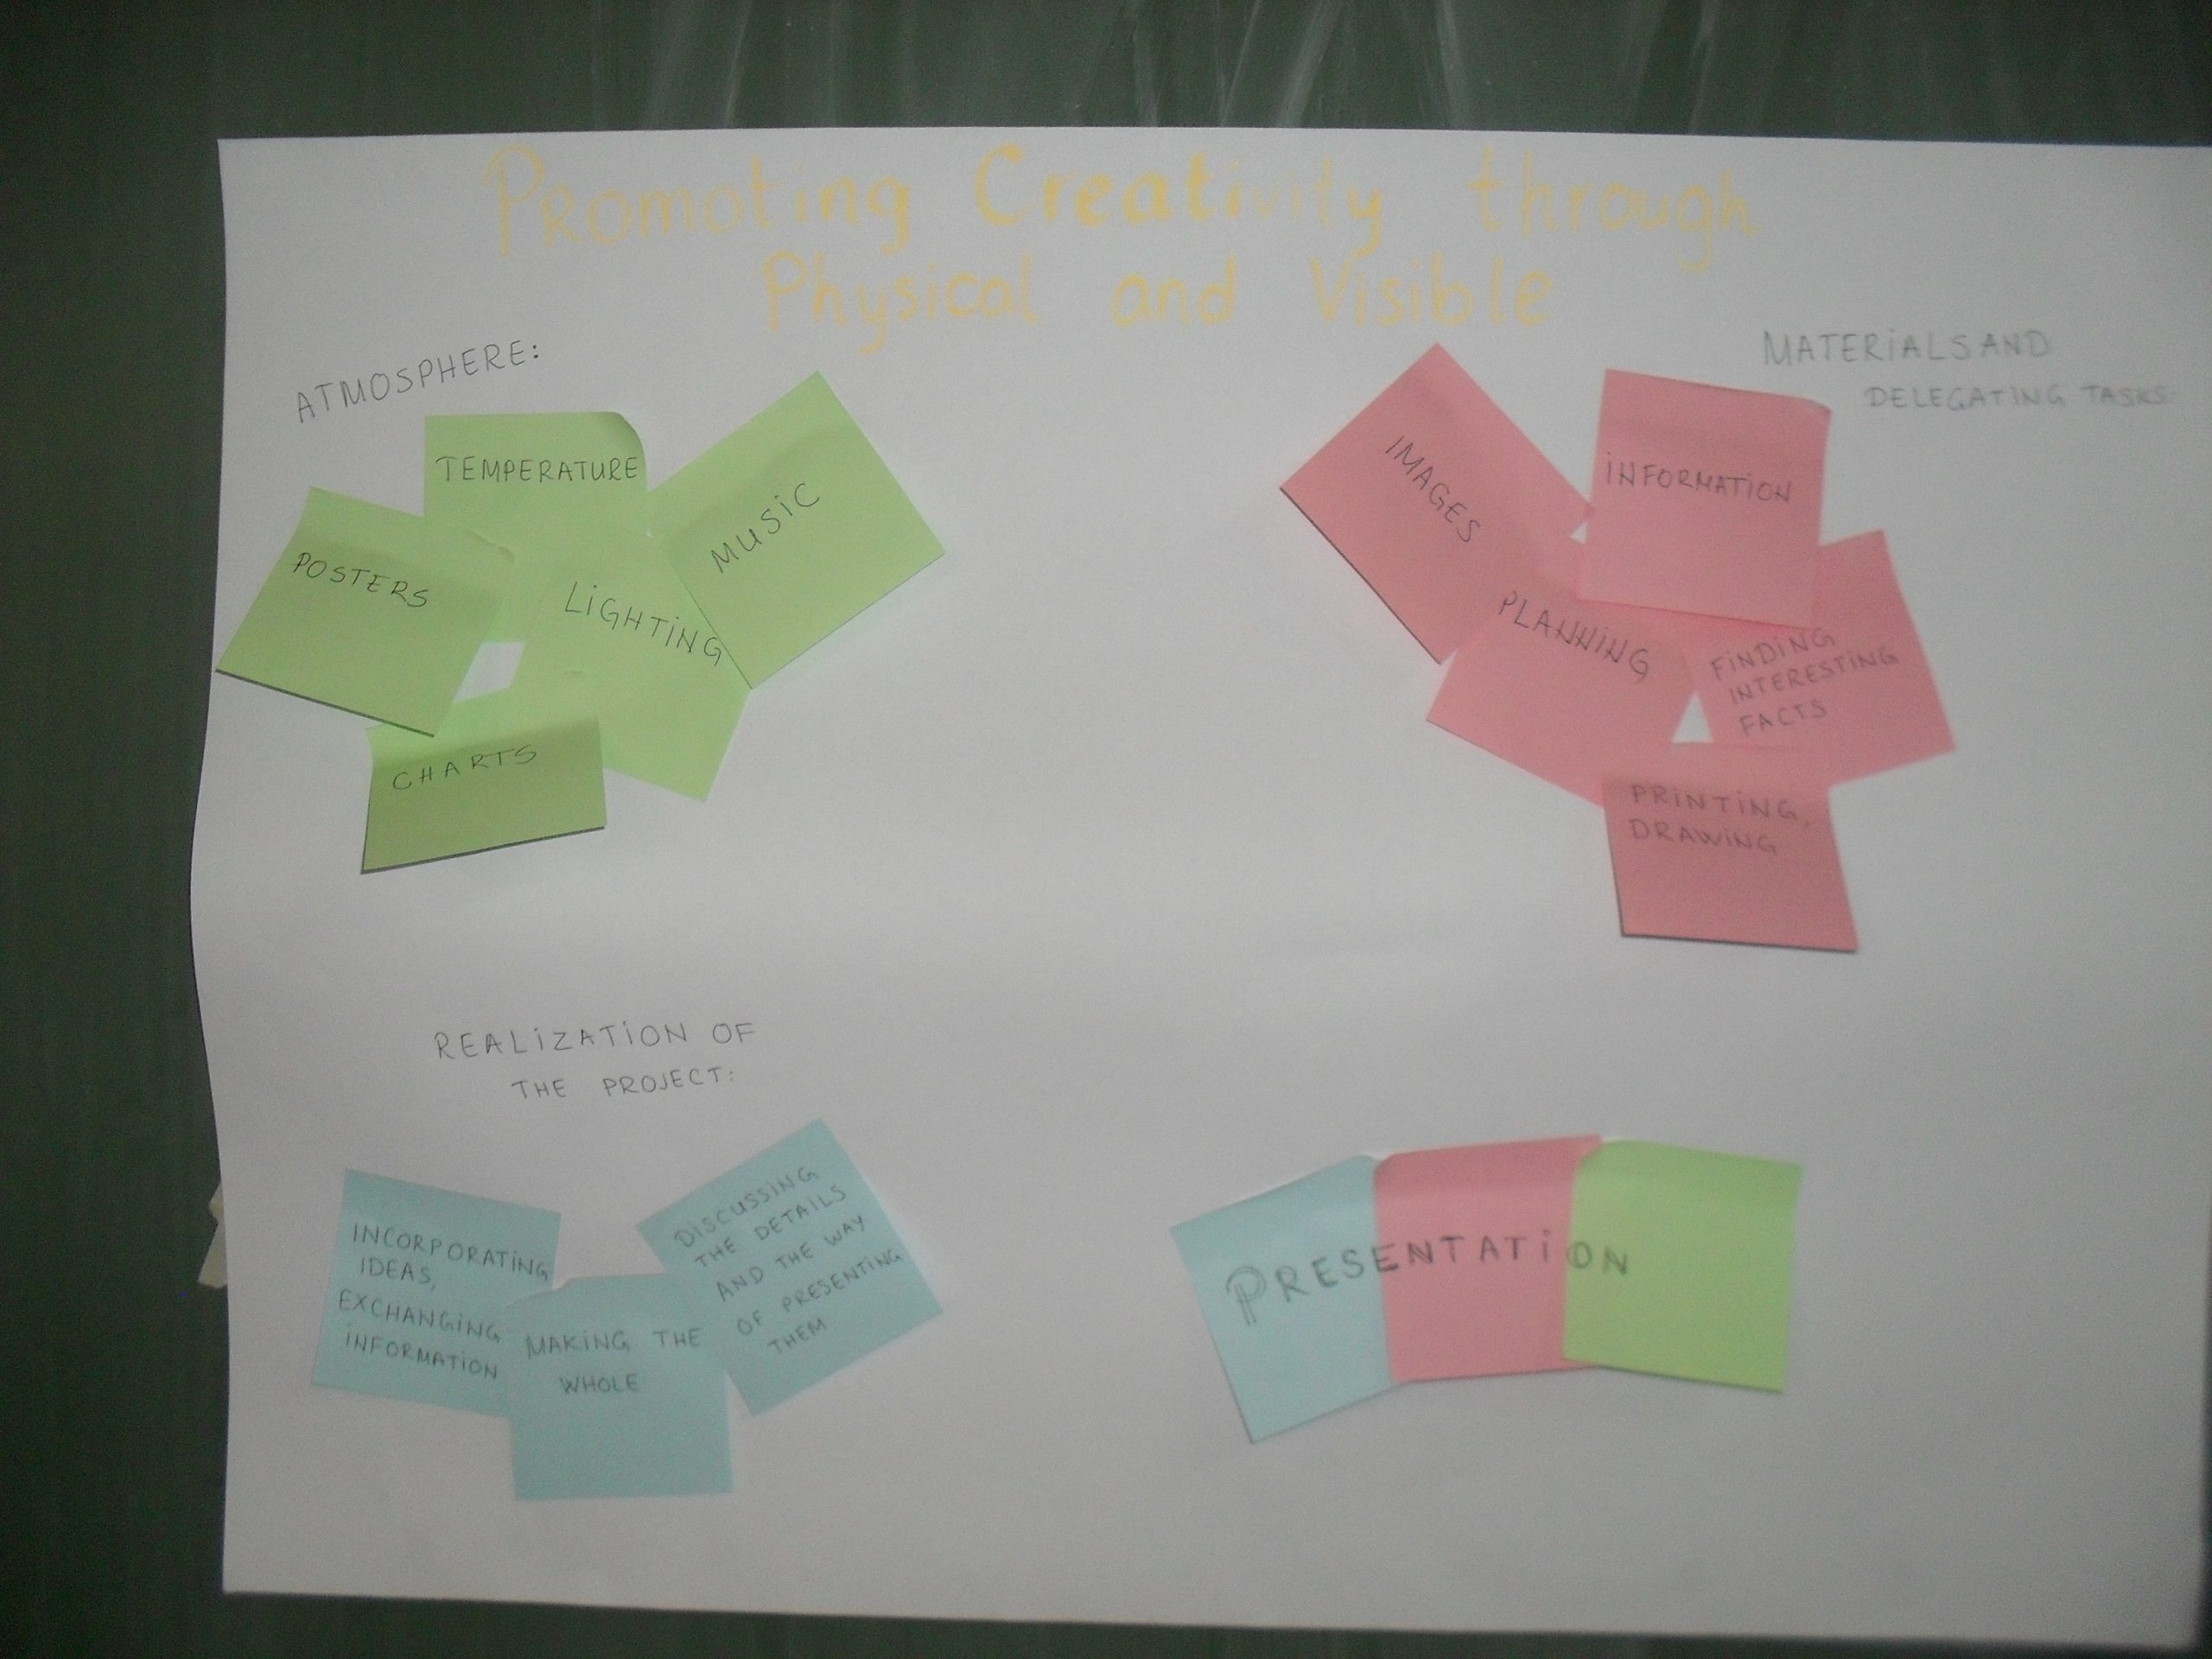 Promoting Creativity through
Physical and Visible
ATMOSPHERE:
TEMPERATURE
MUSIC
POSTERS
LIGHTING
CHARTS
MATERIALS AND
DELEGATING TASKS:
IMAGES
INFORMATION
PLANNING
FINDING
INTERESTING
FACTS
PRINTING,
DRAWING
REALIZATION OF
THE PROJECT:
INCORPORATING
IDEAS,
EXCHANGING
INFORMATION
MAKING THE
WHOLE
DISCUSSING
THE DETAILS
AND THE WAY
OF PRESENTING
THEM
PRESENTATION